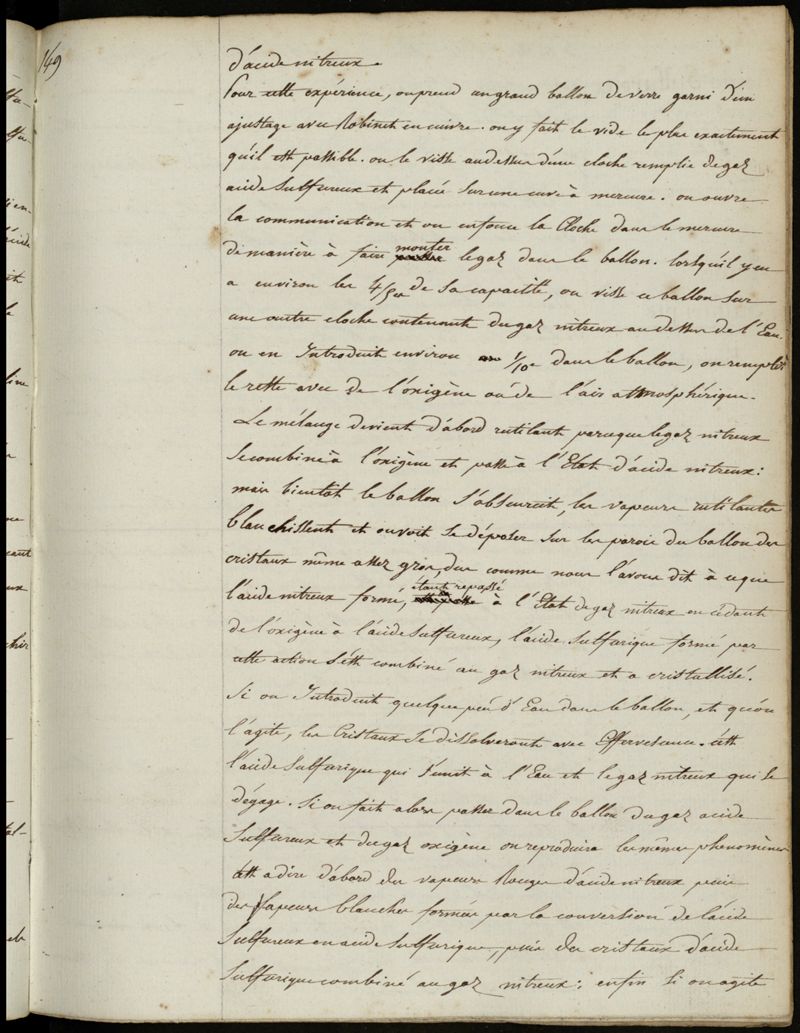 149
d'acide nitreux.
Pour cette expérience, on prend un grand ballon de verre garni d'un
ajustage avec Robinet en cuivre. on y fait le vide le plus exactement
qu'il est possible. on le visse audessus d'une cloche remplie de gaz
acide Sulfureux et placée Sur une cuve à mercure. on ouvre
la communication et on enfonce la Cloche dans le mercure
de manière à faire monter le gaz dans le ballon. lorsqu'il y en
a environ les 4/5es de Sa capacité, on visse ce ballon Sur
une autre cloche contenant du gaz nitreux audessus de l'Eau.
on en Introduit environ 1/10e dans le ballon, on remplit
le reste avec de l'oxigène ou de l'air atmosphérique.
Le mélange devient d'abord rutilant parceque le gaz nitreux
Se combine à l'oxigène et passe à l'Etat d'acide nitreux:
mais bientot le ballon S'obscurcit, les vapeurs rutilantes
blanchissent et on voit Se déposer Sur les parois du ballon des
cristaux même assez gros, dus comme nous l'avons dit à ce que
l'acide nitreux formé, étant repassé à l'Etat de gaz nitreux en cédant
de l'oxigène à l'acide Sulfureux, l'acide Sulfurique formé par
cette action S'est combiné au gaz nitreux et a cristallisé.
Si on Introduit quelque peu d'Eau dans le ballon, et qu'on
l'agite, les Cristaux Se dissolveront avec Effervescence. c'est
l'acide Sulfurique qui S'unit à l'Eau et le gaz nitreux qui Se
dégage. Si on fait alors passer dans le ballon du gaz acide
Sulfureux et du gaz oxigène on reproduira les mêmes phenomènes
c'est a dire d'abord des vapeurs Rouges d'acide nitreux puis
des Vapeurs blanches formées par la conversion de l'acide
Sulfureux en acide Sulfurique, puis des cristaux d'acide
Sulfurique combiné au gaz nitreux: enfin Si on agite